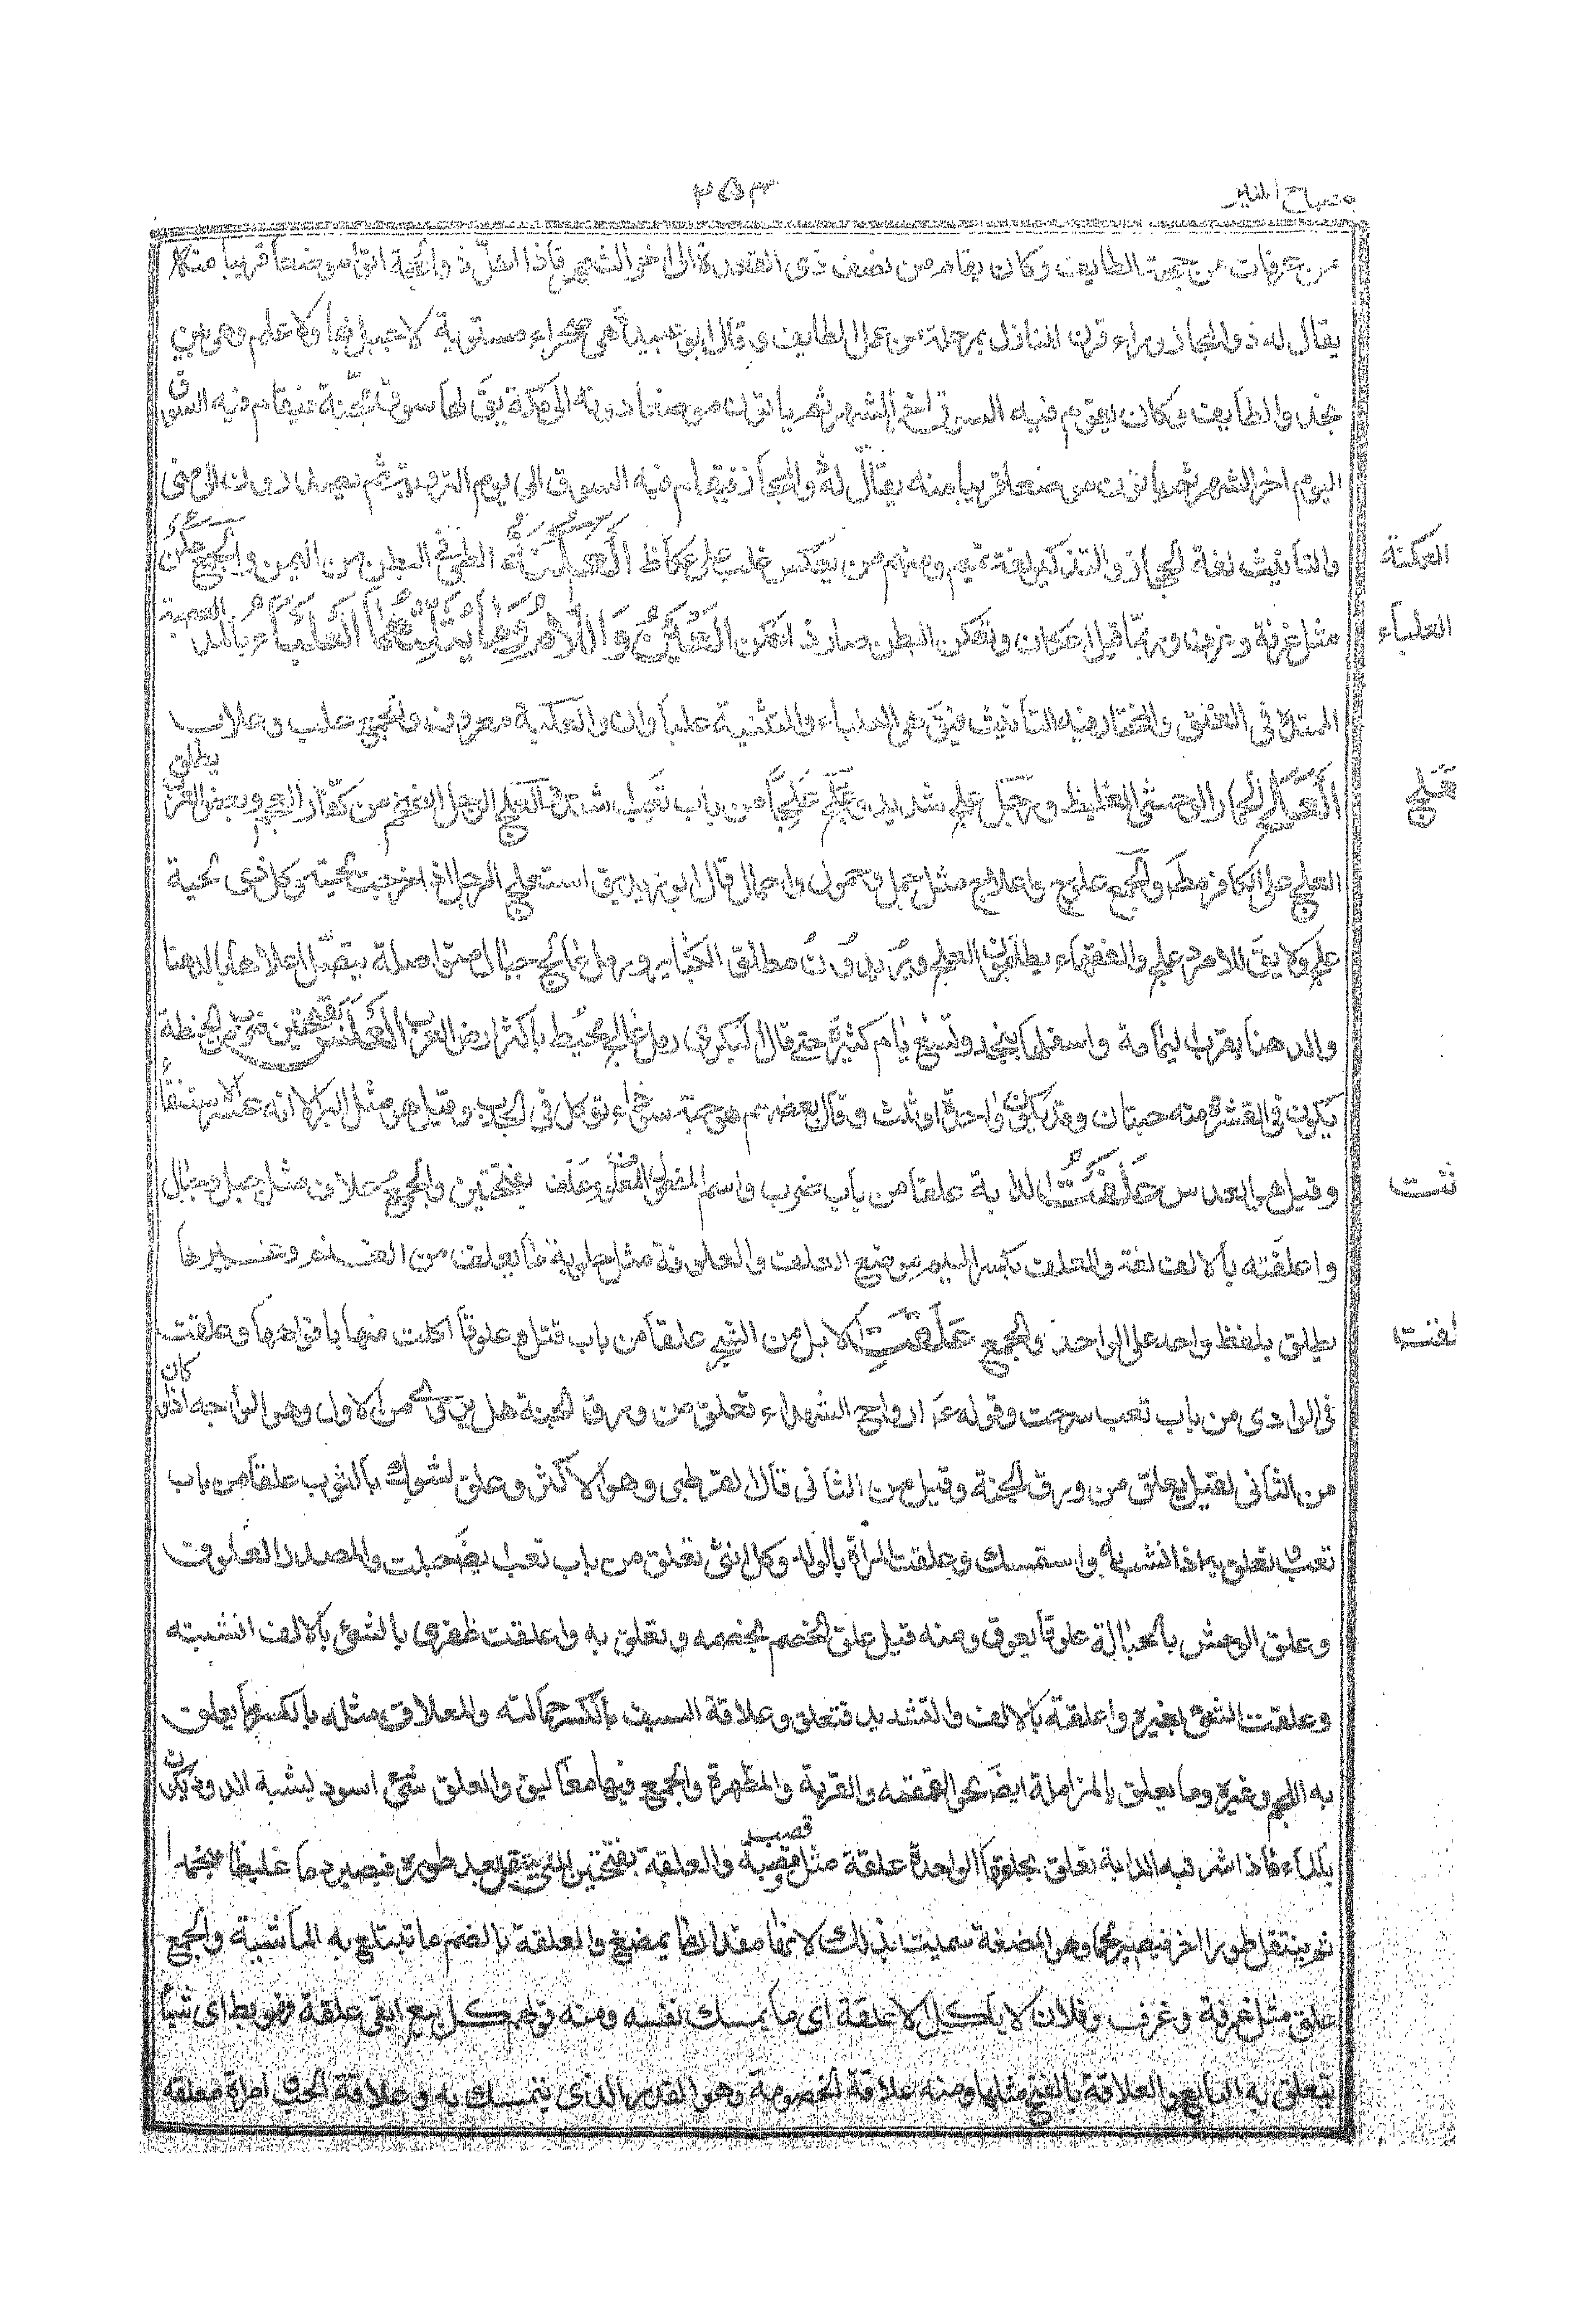 مصباح المنیر
۲۵۳
من عرفات من جهة الطایف وکان یقام من نصف ذی القعدة الی اخر الشهر فاذا اهلّ ذو الحجة اتوا موضعا قریبا منه
یقال له ذو المجاز وراء قرن المنازل بمرحلة من عمل الطایف وقال ابو عبید هی صحراء مستویة لا جبل فیها ولا علم وهی بین
نجد والطایف وکان یقوم فیه السوق اخر الشهر ثم یاتون موضعا دونه الی مکة یق لها سوق مجنة فیقام فیه السوق
الیوم اخر الشهر ثم یاتون موضعا قریبا منه یقال له ذو المجاز فیقام فیه السوق الی یوم الترویة ثم یصدرون الی منی
العکنة
والتانیث لغة الحجاز والتذکیر لغة تمیم ومنهم من یعکس غلب علی عکاظ العُکْنَةُ الطی فی البطن من السمن والجمع عُکَنٌ
العلباء
مثل غرفة وغرف وربما قیل اعکان وتعکن البطن صار ذا عکن العَیْنُ وَ اللّامُ وَمَا یُثَلِّثُهُمَا العلباءُ بالمد العصبة
الممتلئ فی العنق والمختار فیه التانیث فیق هی العلباء والتثنیة علباوان والعلبة معروفة والجمع علب وعلاب
علج
العِلْجُ الحمار الوحشی الغلیظ ورجل علج شدید وعَلِجَ عَلَجًا من باب تعب اشتد والعلج الرجل الضخم من کفار العجم وبعض العرب یطلق
العلج علی الکافر مطلقا والجمع علوج واعلاج مثل حمل وحمول واحمال قال ابو زید یق استعلج الرجل اذا خرجت لحیته وکل ذی لحیة
علج ولا یق للامرد علج والفقهاء یطلقون العلج ویریدون مطلق الکبیر ورمل عالج جبال متواصلة یتصل اعلاها بالدهنا
والدهنا بقرب الیمامة واسفلها بنجد وتتسع اتساعا کثیرا حتی قال البکری رمل عالج محیط باکثر ارض العرب العَلَسُ بفتحتین ضرب من الحنطة
یکون فی القشرة منه حبتان وقد یکون واحدة او ثلث وقال بعضهم هو حبة سوداء توکل فی الجدب وقیل هو مثل البر الا انه عسر الاستنقاء
علفت
وقیل هو العدس عَلَفْتُ الدابة علفا من باب ضرب واسم المعلوف العلف وعلف بفتحتین والجمع علاف مثل جبل وجبال
واعلفته بالالف لغة والمعلف بکسر المیم موضع العلف والعلوفة مثل حلوبة ما یعلف من الغنم وغیرها
علقت
یطلق بلفظ واحد علی الواحد والجمع عَلَقَتِ الابل من الشجر علقا من باب قتل وعلوقا اکلت منها بافواهها وعلقت
فی الوادی من باب تعب سرحت وقوله ع ارواح الشهداء تعلق من ورق الجنة هل یروی من الاول وهو الوجه اذ لو کان
من الثانی لقیل تعلق من ورق الجنة وقیل من الثانی قال القرطبی وهو الاکثر وعلق الشوک بالثوب علقا من باب
تعب وتعلق به اذا نشب به واستمسک وعلقت المراة بالولد وکل انثی تعلق من باب تعب ایضا حبلت والمصدر العلوق
وعلق الوحش بالحبالة علوقا تعوق ومنه قیل علق الخصم بخصمه وتعلق به واعلقت ظفری بالشئ بالالف انشبته
وعلقت الشئ بغیره واعلقته بالالف والتشدید فتعلق وعلاقة السیف بالکسر حمالته والمعلاق مثله بالکسر ما یعلق
به اللحم وغیره وما یعلق بالزاملة ایضا نحو القمقمة والقربة والمطهرة والجمع فیهما معالیق والعلق شئ اسود یشبه الدود یکون
بالماء فاذا شربته الدابة تعلق بحلقها الواحدة علقة مثل قصب وقصبة والعلقة بفتحتین المنی ینتقل بعد طوره فیصیر دما غلیظا متجمدا
ثم ینتقل طورا اخر فیصیر لحما وهو المضغة سمیت بذلک لانها مقدار ما یمضغ والعلقة بالضم ما تتبلغ به الماشیة والجمع
علق مثل غرفة وغرف وفلان لا یاکل الا علقة ای ما یمسک نفسه ومنه قولهم کل بیع ابقی علقة فهو باطل ای شیأ
یتعلق به البایع والعلاقة بالفتح مثلها ومنه علاقة الخصومة وهو القدر الذی یتمسک به وعلاقة الحب امراة معلقة